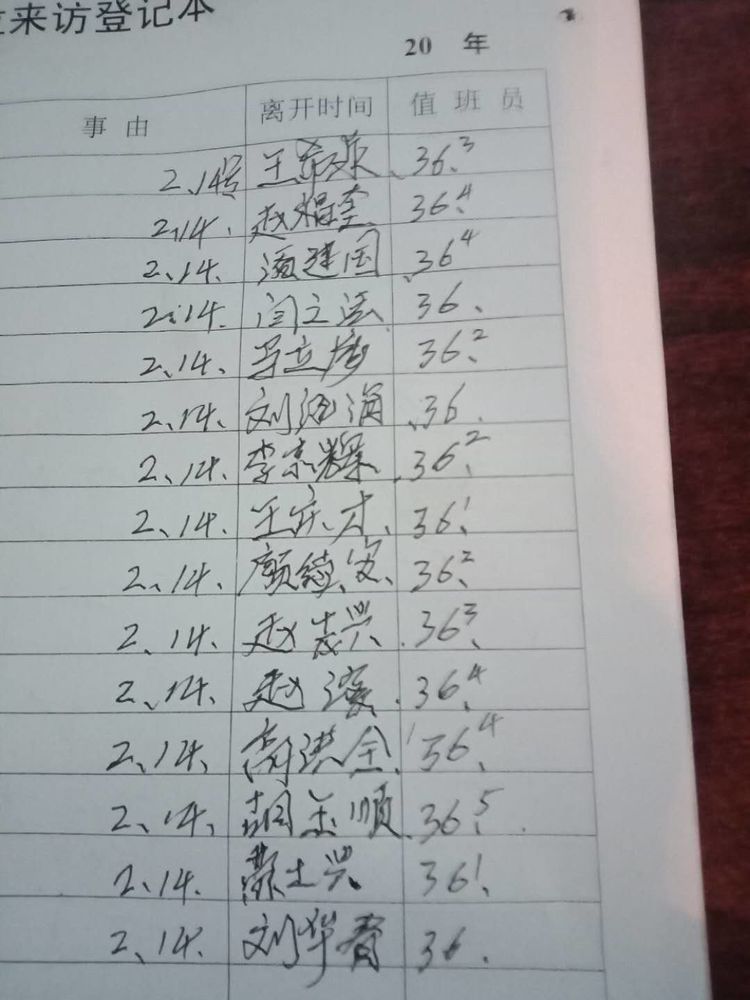 来访登记本
20 年
事由 离开时间 值班员
2.14号 王 36.3
2.14. 赵 36.4
2.14. 潘建国 36.4
2.14. 闫立 36.
2.14. 马立 36.2
2.14. 刘 36.
2.14. 李宗 36.2
2.14. 王庆才 36.1
2.14. 颜德安 36.2
2.14. 赵兴 36.3
2.14. 赵 36.4
2.14. 高洪全 36.4
2.14. 胡玉顺 36.5
2.14. 士兴 36.1
2.14. 刘华春 36.